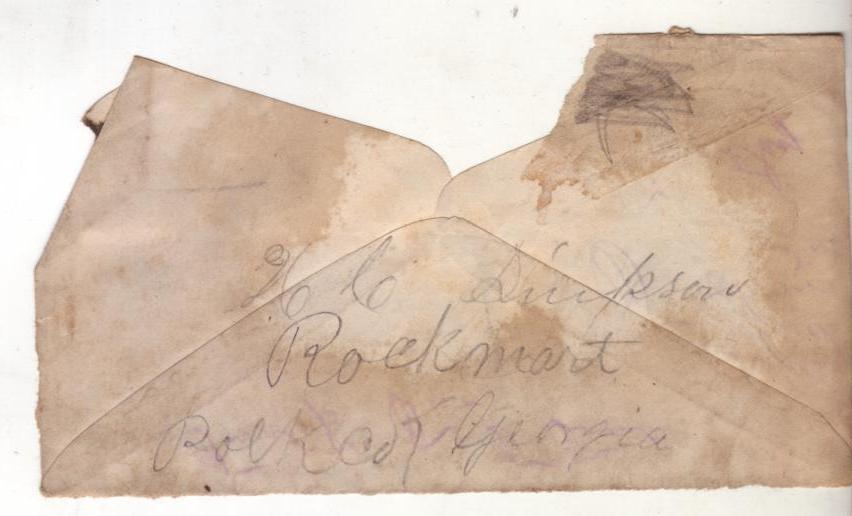 H C Simpson
Rockmart
Polk Co Georgia